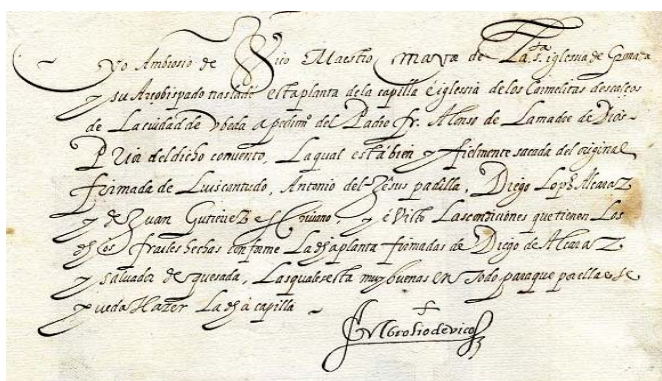 Yo Ambrosio de Vico Maestro mayor de La sta. iglesia de Granada
y su Arçobispado trasladé esta planta de la capilla é iglesia de los Carmelitas descalços
de La ciudad de Vbeda a pedimº del Padre fr. Alonso de La madre de Dios
Prior del dicho conuento, La qual está bien y fielmente sacada del original
firmada de Luis cantudo, Antonio del Jesus padilla, Diego Lopz Alcaraz
y de Juan Gutierrez escriuano. y é Visto Las condiciones que tienen Los
dhos frailes hechas conforme La dha planta firmadas de Diego de Alcaraz
y saluador de quesada, Las quales está muy buenas en todo para que por ellas se
pueda Hazer La dha capilla
Ambrosio de vico